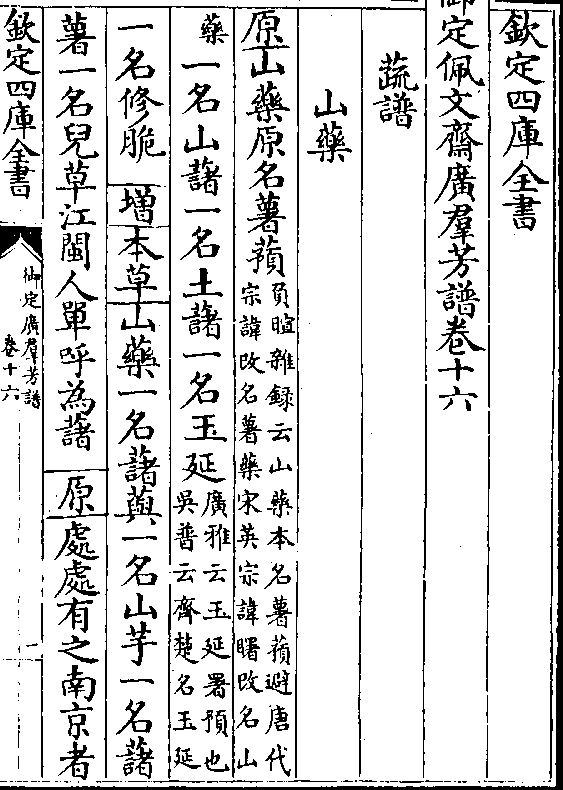 欽定四庫全書
御定佩文齋廣羣芳譜卷十六
蔬譜
山藥
原山藥原名薯蕷負暄雜録云山藥本名薯蕷避唐代宗諱改名薯藥宋英宗諱曙改名山
藥一名山藷一名土藷一名玉延廣雅云玉延署預也吳普云齊楚名玉延
一名修脆増本草山藥一名藷藇一名山芋一名藷
薯一名兒草江閩人單呼為藷原處處有之南京者
欽定四庫全書
御定廣羣芳譜
卷十六
一